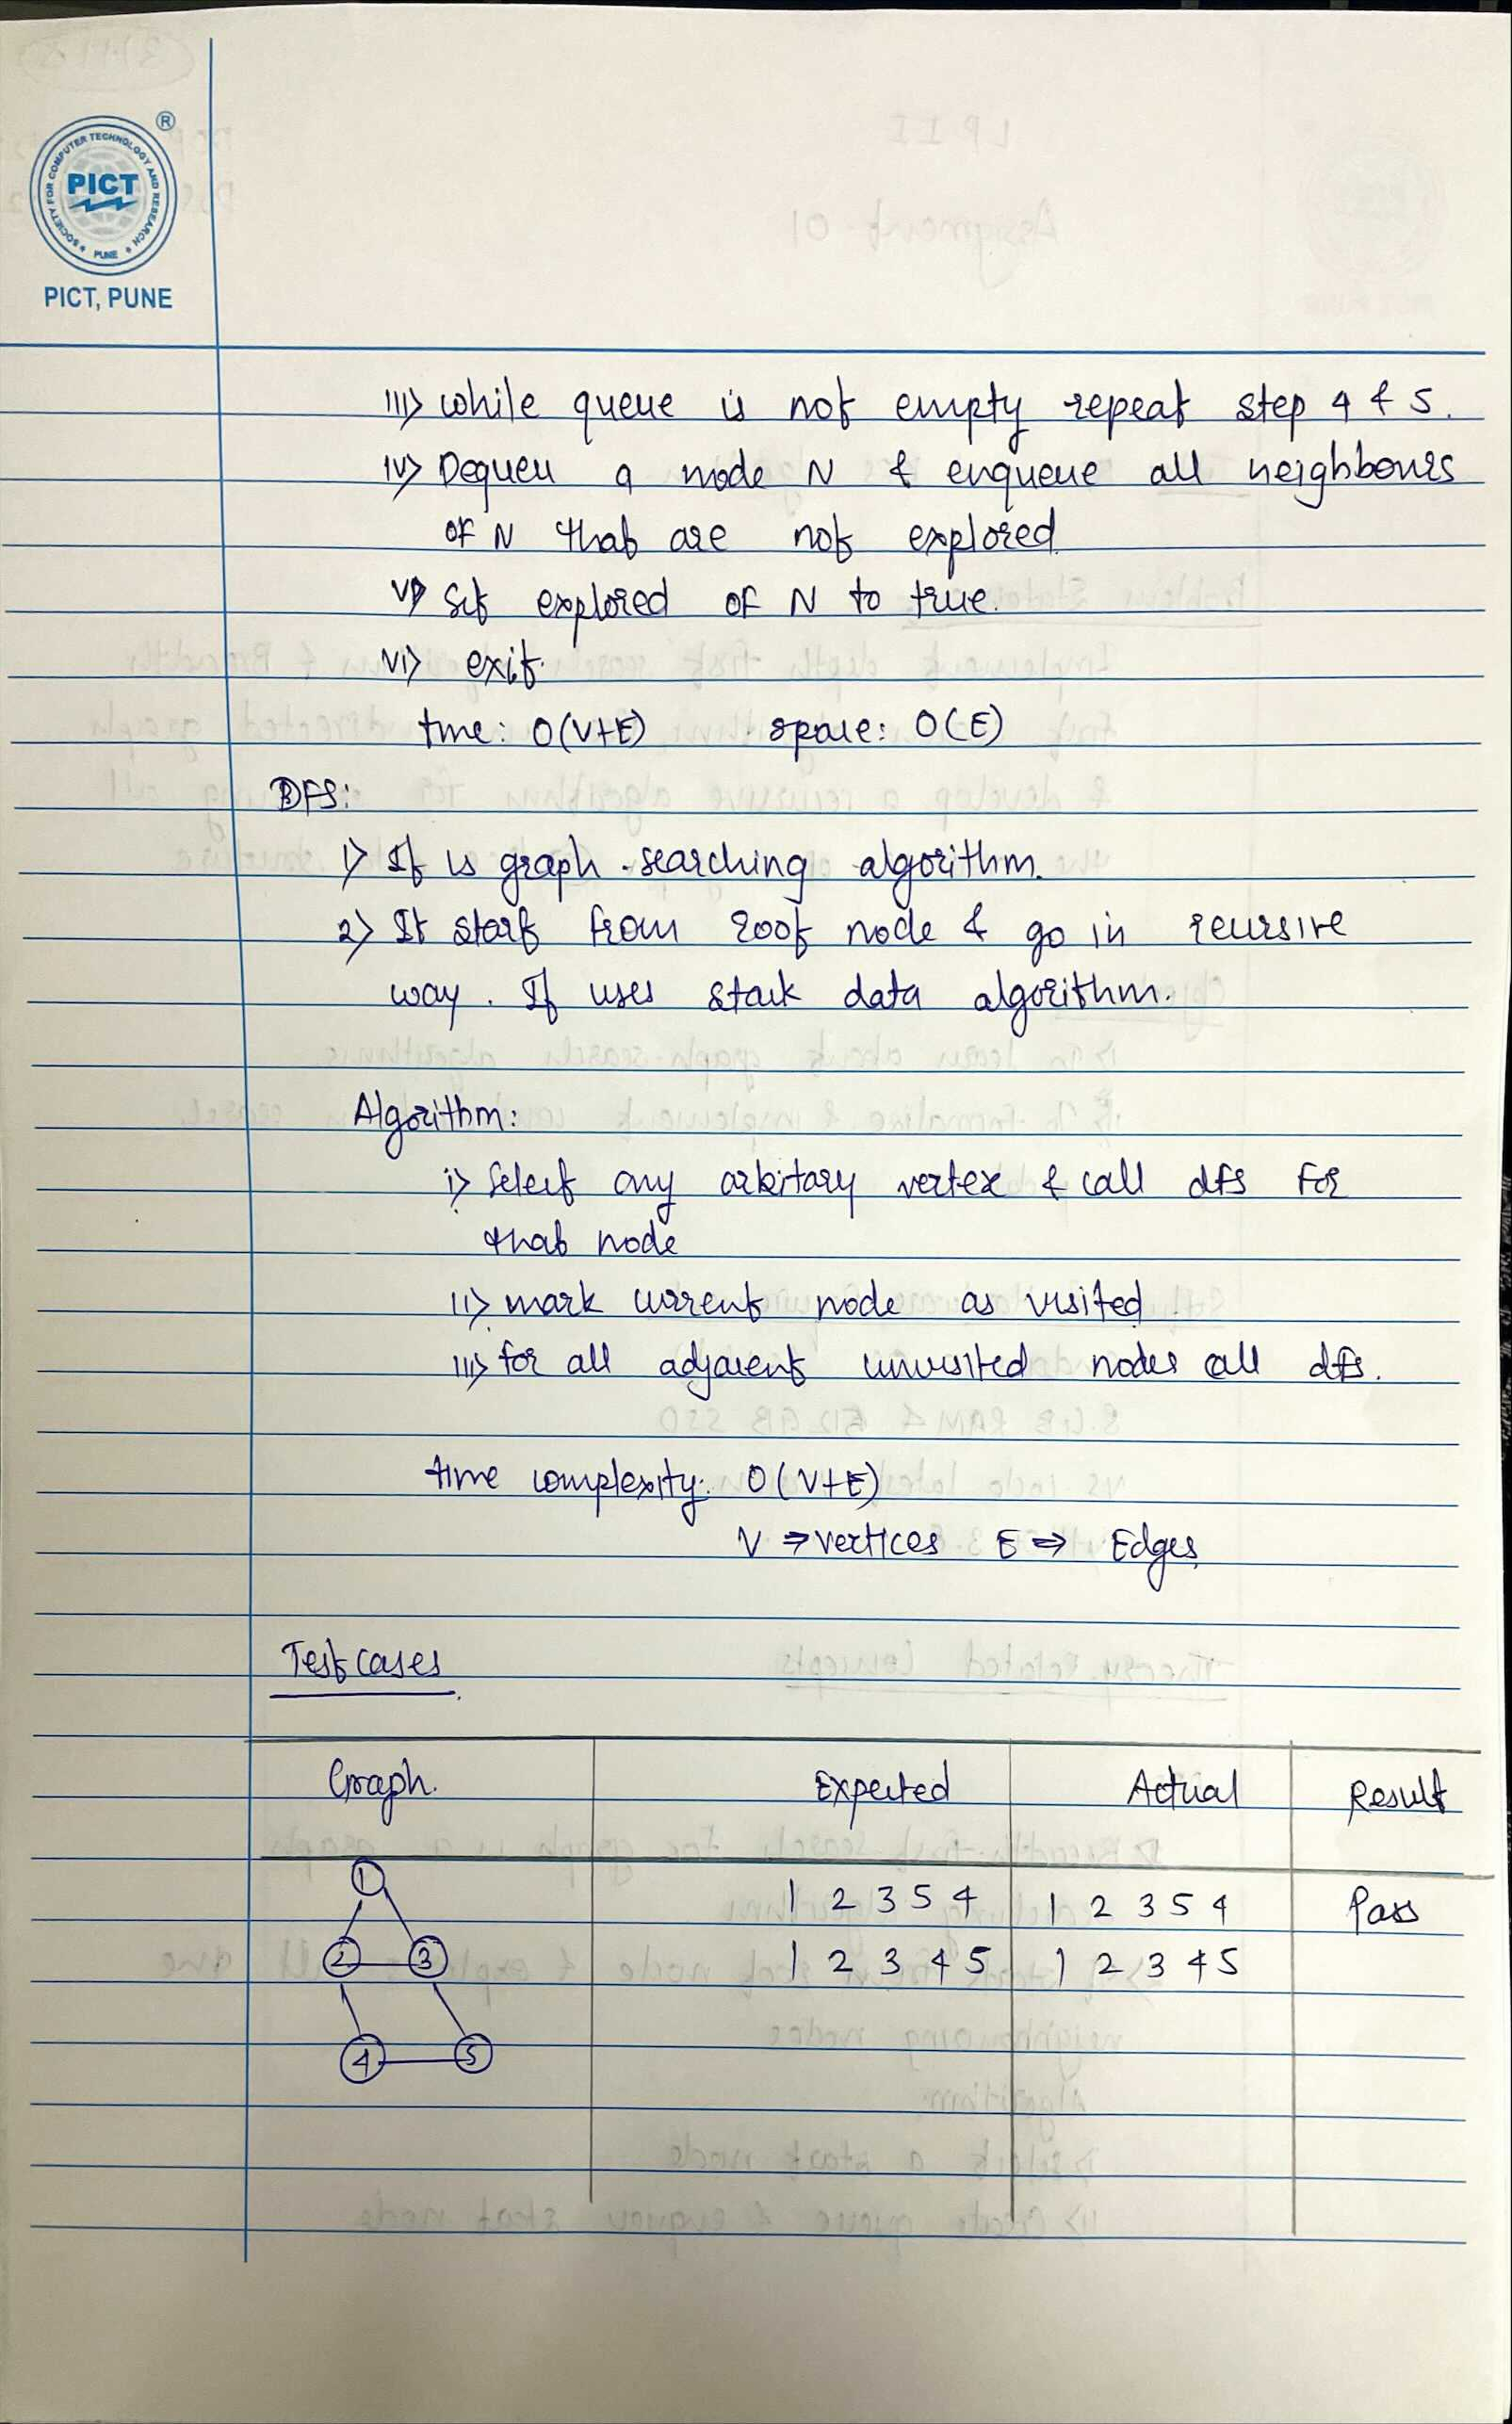 ®
SOCIETY FOR COMPUTER TECHNOLOGY AND RESEARCH
PICT
PUNE
PICT, PUNE
III> While queue is not empty repeat step 4 & 5.
IV> Dequeu a node N & enqueue all neighbours
of N that are not explored
V> Set explored of N to true.
VI> exit.
time: O(V+E) space: O(E)
DFS:
1> It is graph searching algorithm.
2> It start from root node & go in recursive
way. It uses stack data algorithm.
Algorithm:
i> Select any arbitary vertex & call dfs for
that node
ii> mark current node as visited
iii> for all adjacent unvisited nodes call dfs.
time complexity: O(V+E)
V ⇒ vertices E ⇒ Edges
Test cases
Graph. Expected Actual Result
1 1 2 3 5 4 1 2 3 5 4 Pass
2 3 1 2 3 4 5 1 2 3 4 5
4 5